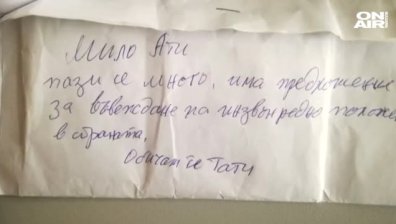 ON
AIR
Мило Ати
пази се много, има предложение
за въвеждане на извънредно положе
в страната.
Обичам те Тати